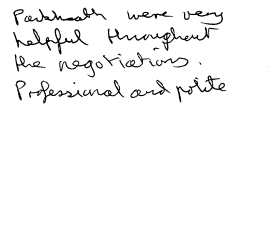 Parkheath were very
helpful throughout
the negotiations.
Professional and polite